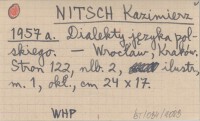 NITSCH Kazimierz
1957 a. Dialekty języka pol-
skiego. — Wrocław, Kraków.
Stron 122, nlb. 2, ilustr,
m. 1, okł., cm 24 x 17.
WHP